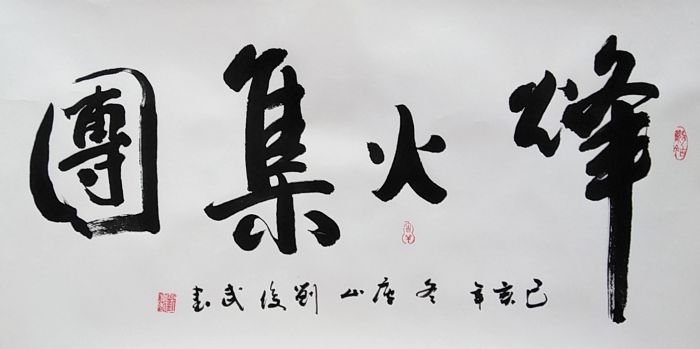 烽火集團
己亥年冬唐山劉俊武書